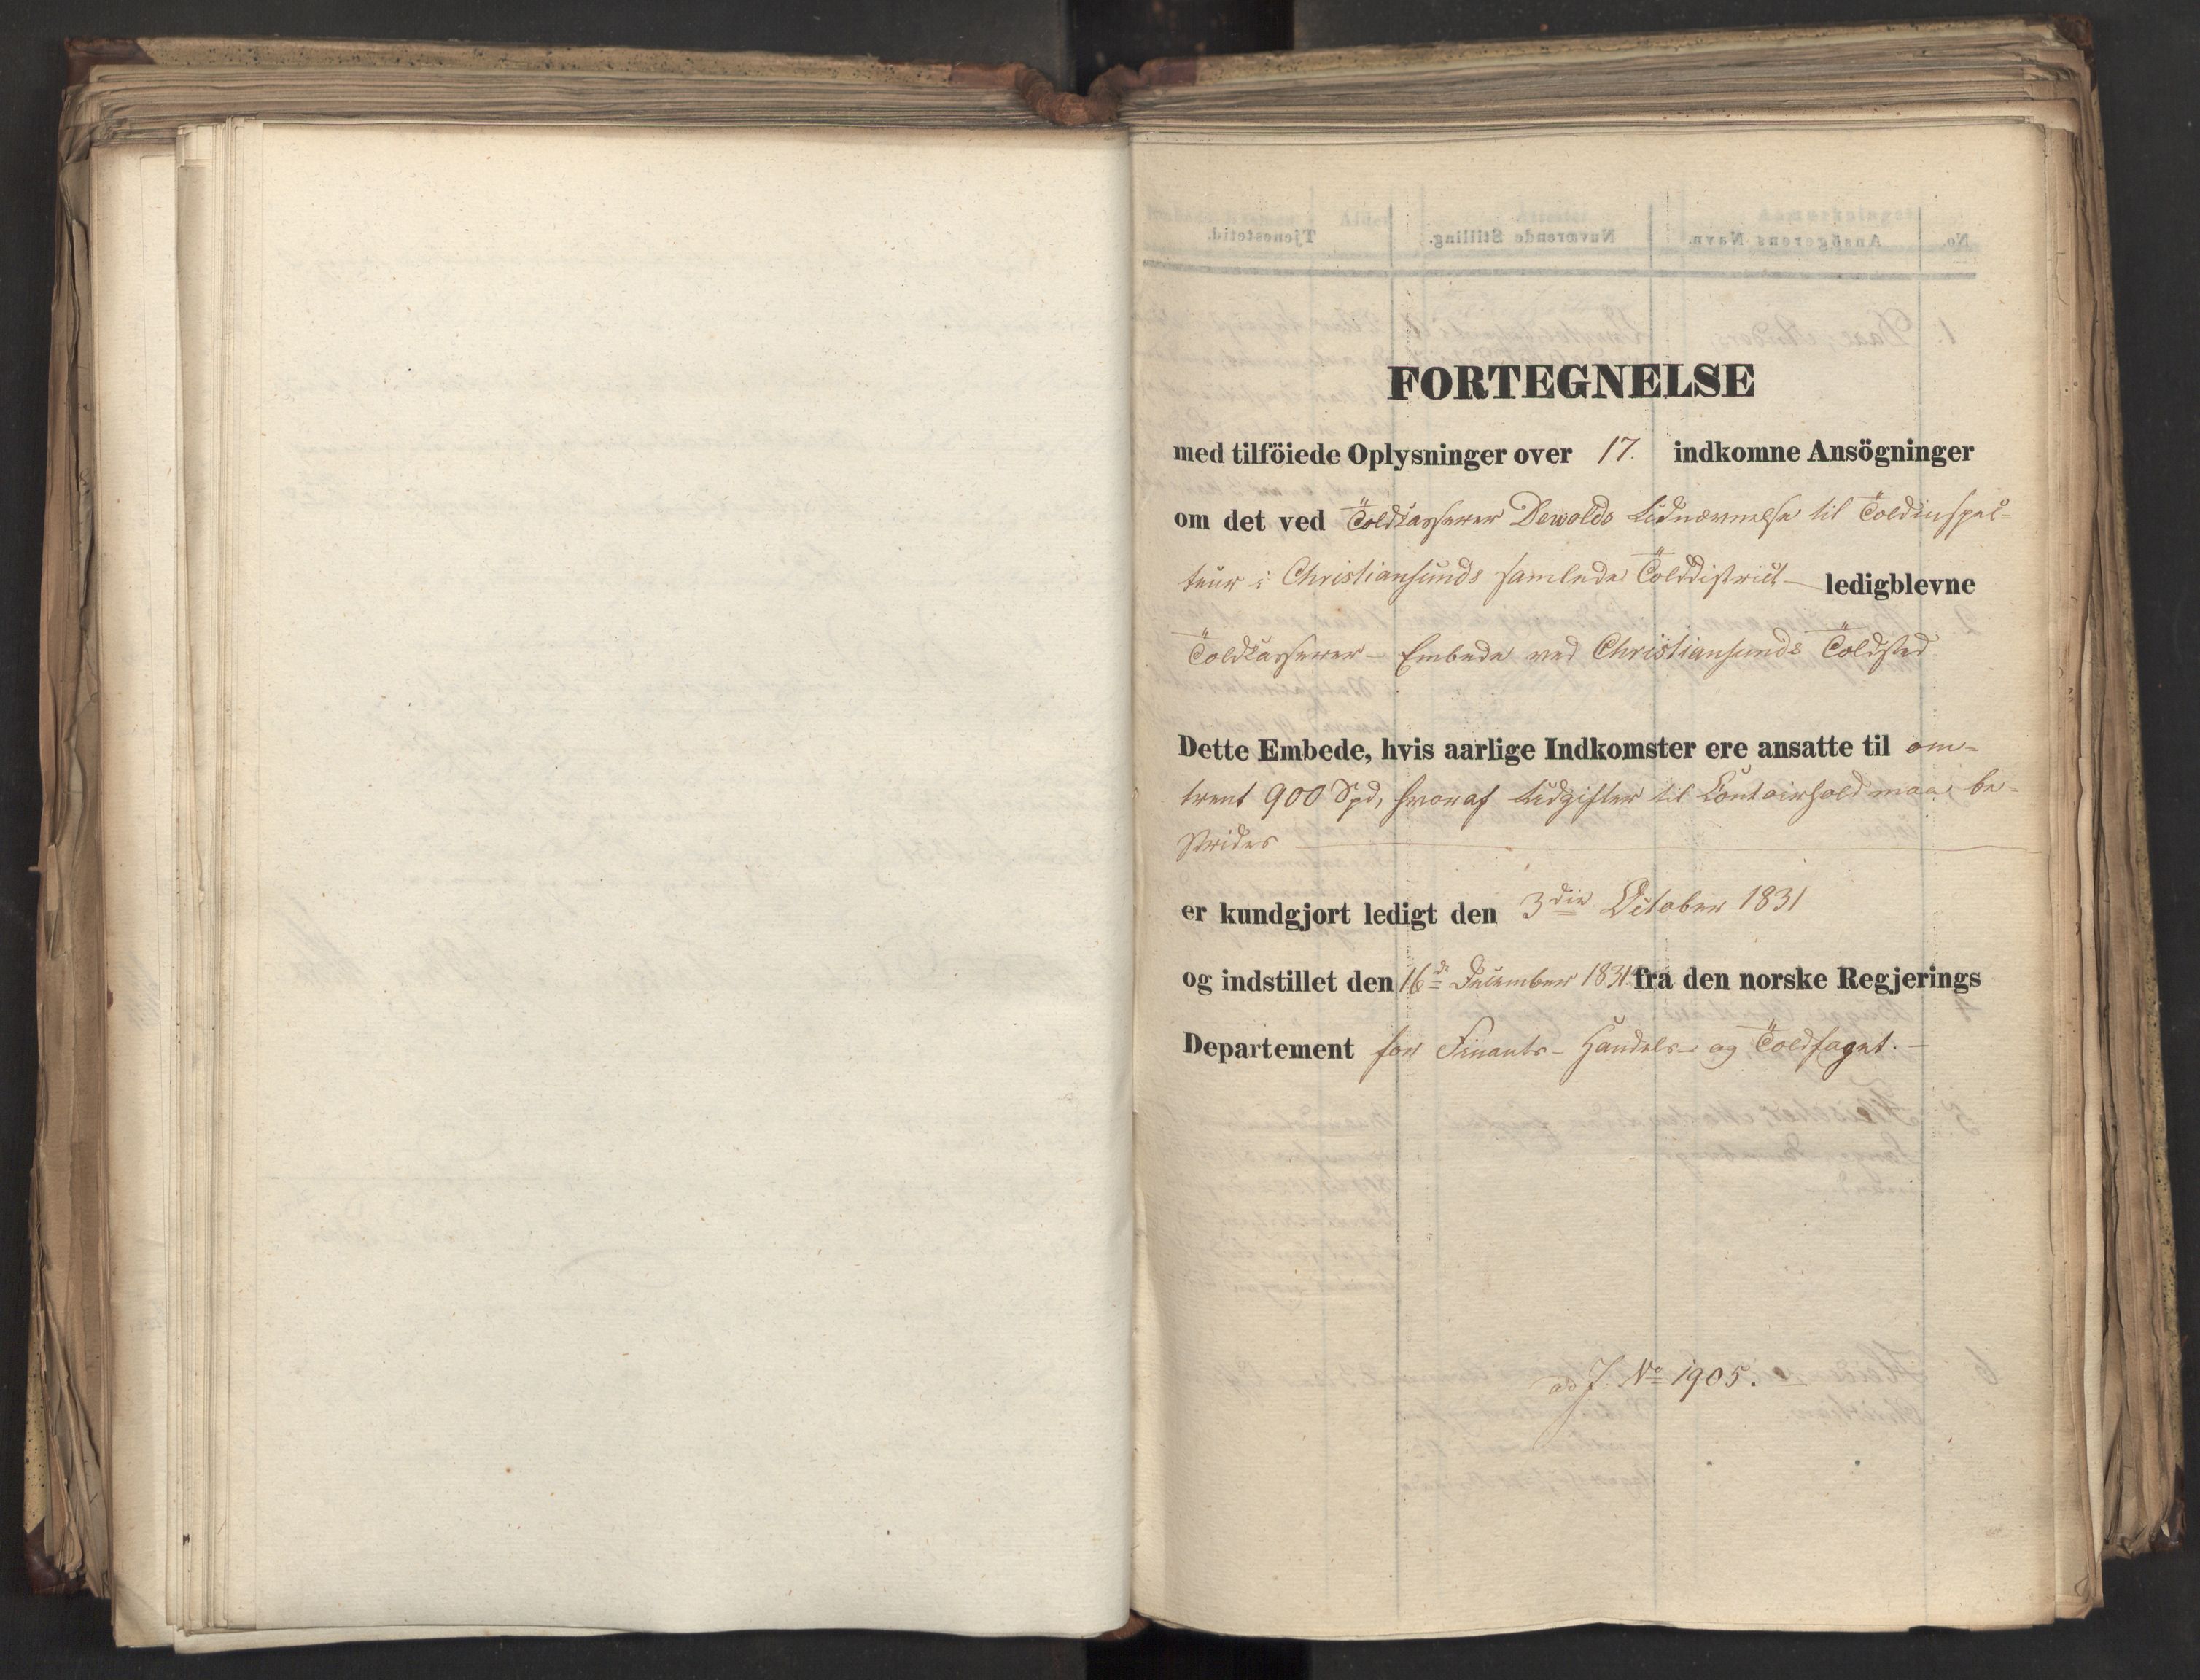 FORTEGNELSE
med tilföiede Oplysninger over 17. indkomne Ansögninger
om det ved Toldkasserer Dewolds Udnævnelse til Toldinspek-
teur i Christiansunds samlede Tolddistrict ledigblevne
Toldkasserer-Embede ved Christiansunds Toldsted
Dette Embede, hvis aarlige Indkomster ere ansatte til om-
trent 900 Spd, hvoraf Udgifter til Contoirhold maa be-
strides
er kundgjort ledigt den 3die October 1831
og indstillet den 16de December 1831 fra den norske Regjerings
Departement for Finants- Handels- og Toldfaget.
ad J. No 1905.